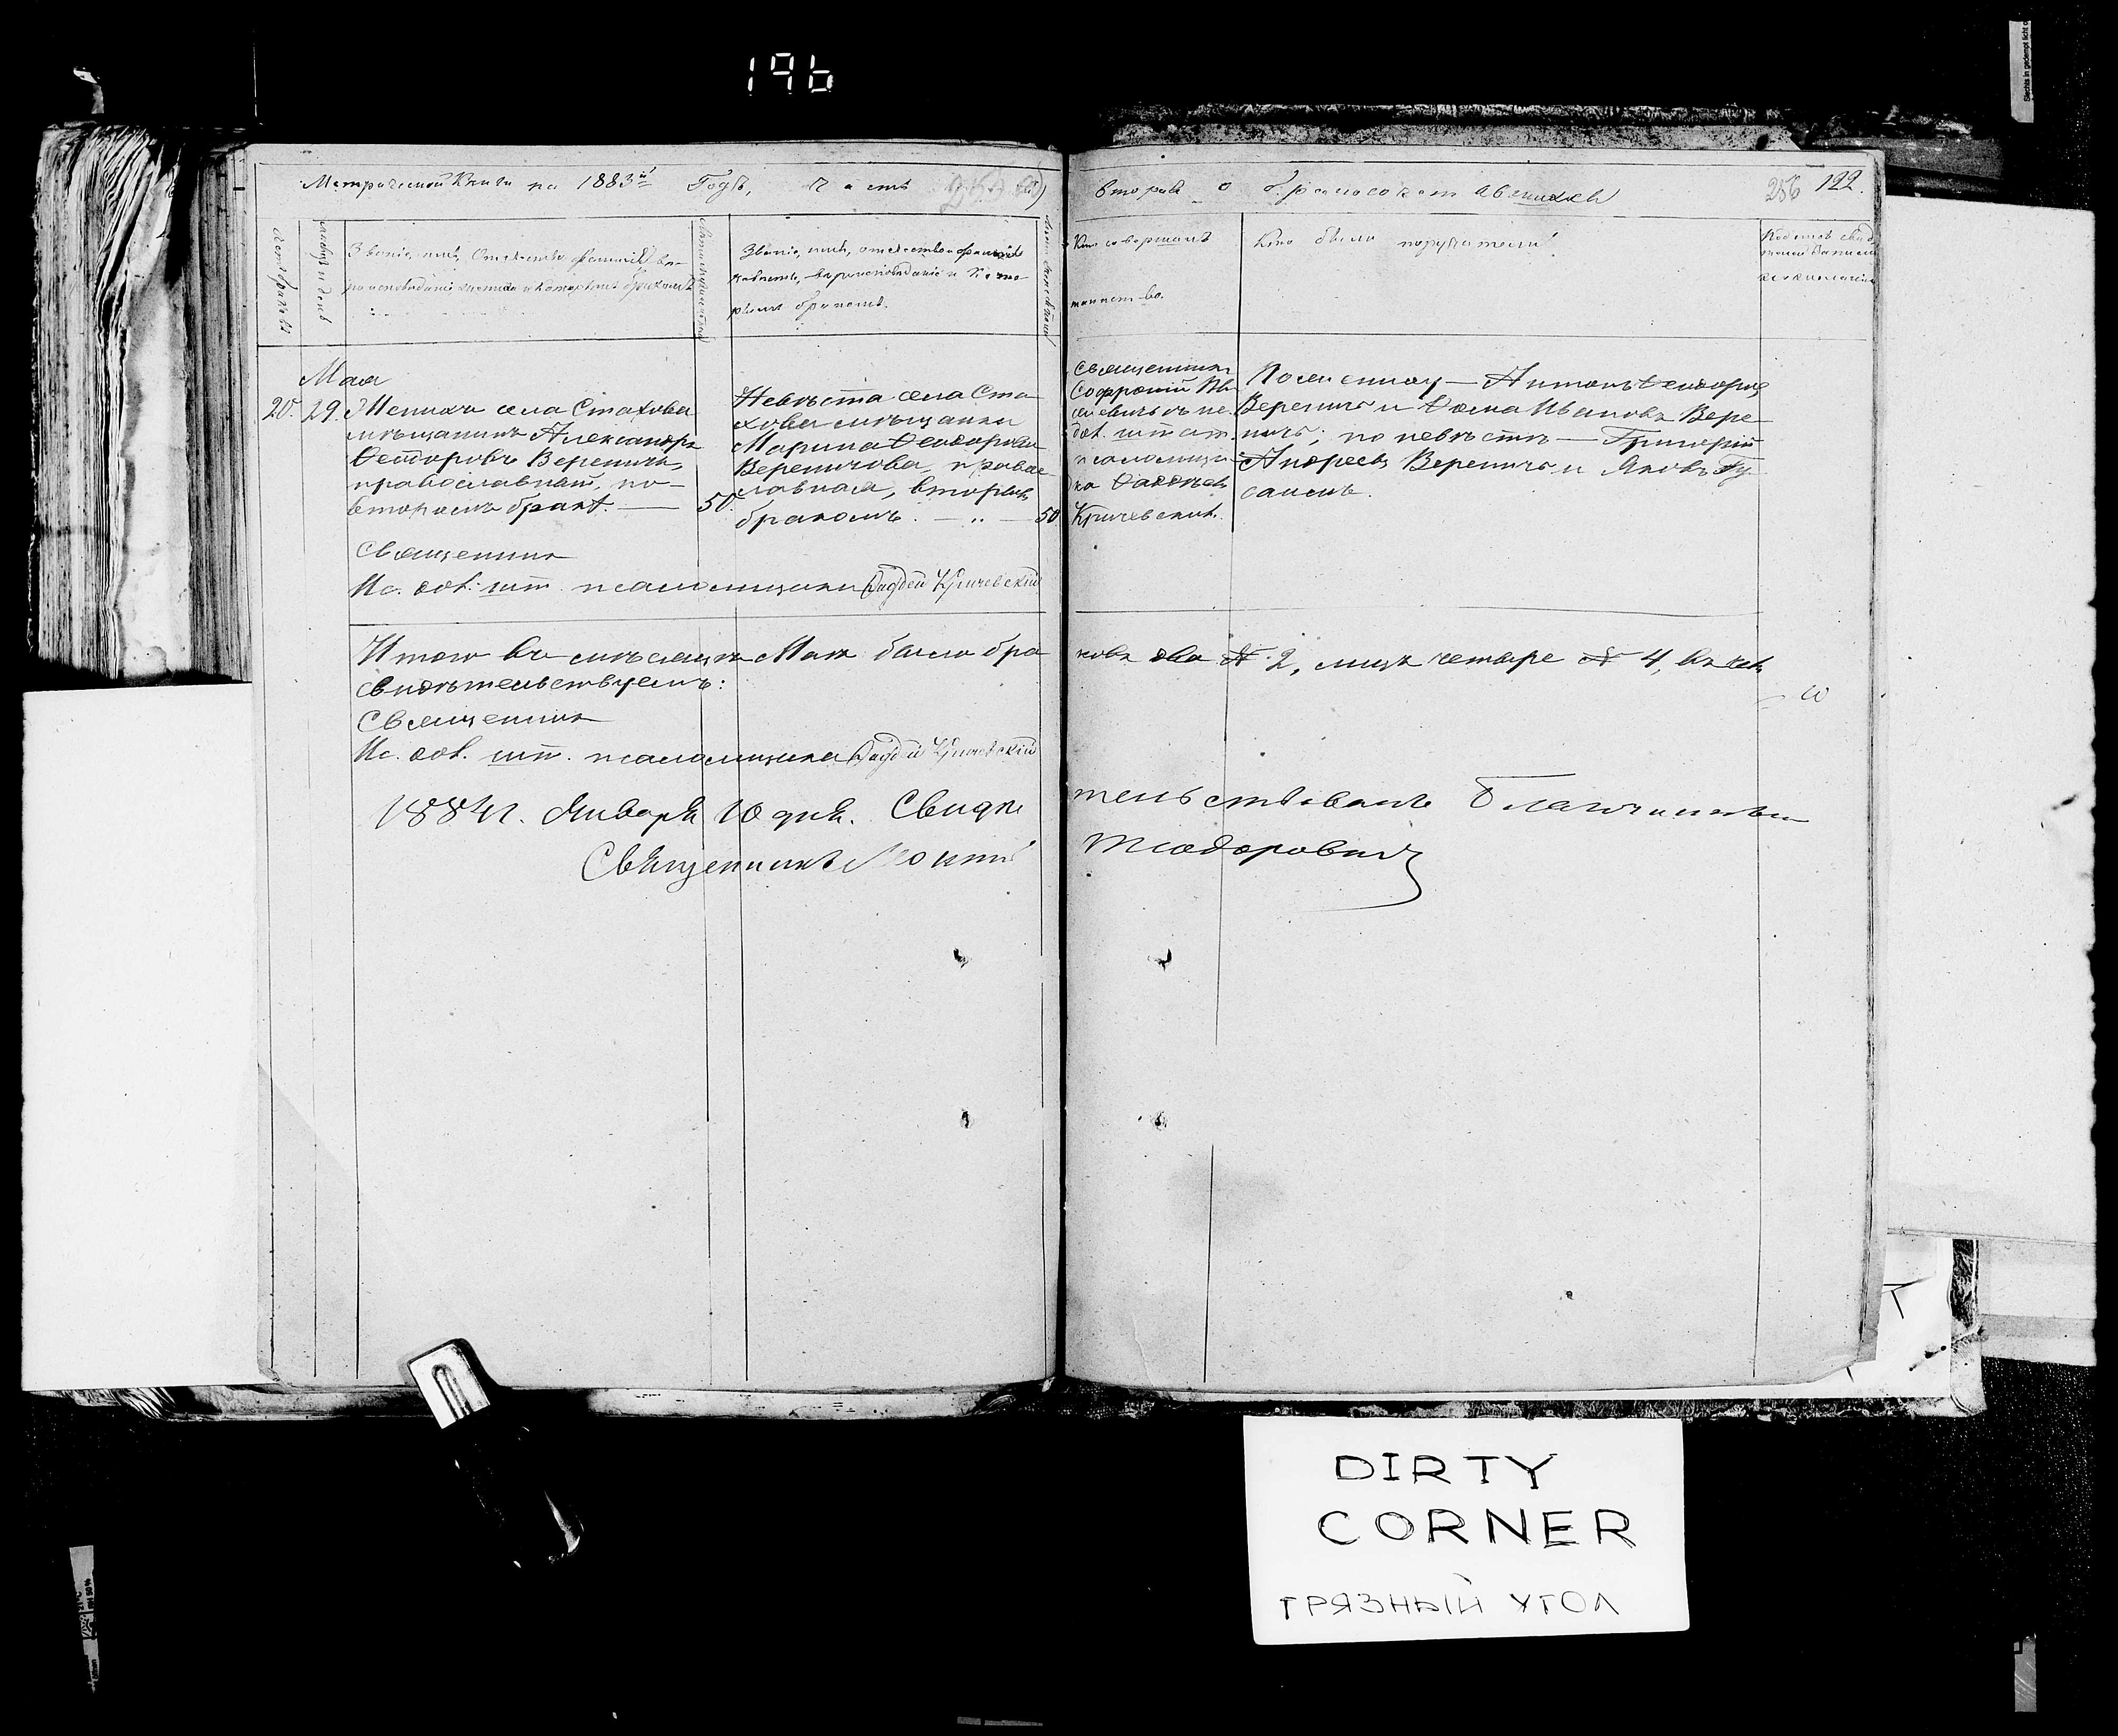 196
Метрической Книги на 1883й Годъ, часть
вторая о бракосочетавшихся
256 122.
Званіе, имя, отчество, фамилія, вѣ-
роисповѣданіе жениха и которымъ бракомъ
Званіе, имя, отчество, фамилія
невѣсты, вѣроисповѣданіе и кото-
рымъ бракомъ.
Кто совершалъ
таинство.
Кто были поручители
Мая
20. 29. Женихъ села Стахова
мѣщанинъ Александръ
Ѳеодоровъ Вереничъ,
православный, по
второмъ бракѣ. — 50.
Невѣста села Ста
хова мѣщанка
Марина Ѳеодорова
Вереничова, правос
лавная, вторымъ
бракомъ. — „ — 50
Священникъ
Софроній
псаломщи
ка Ѳаддѣй
Кричевскій.
По жениху — Антонъ Ѳеодоровъ
Вереничъ и Ѳома Ивановъ Вере
ничъ; по невѣстѣ — Григорій
Андреевъ Вереничъ и Яковъ Гу
Священникъ
Ис. дол. шт. псаломщика Фаддей Кричевскій
Итого въ мѣсяцѣ Маѣ было бра
ковъ два № 2, лицъ четыре № 4, въ чемъ
свидѣтельствуемъ:
Священникъ
Ис. дол. шт. псаломщика Фаддей Кричевскій
1884 г. Января 10 дня. Свидѣ
тельствовалъ Благочинный
Священникъ
Теодоровичъ
DIRTY
CORNER
ГРЯЗНЫЙ УГОЛ